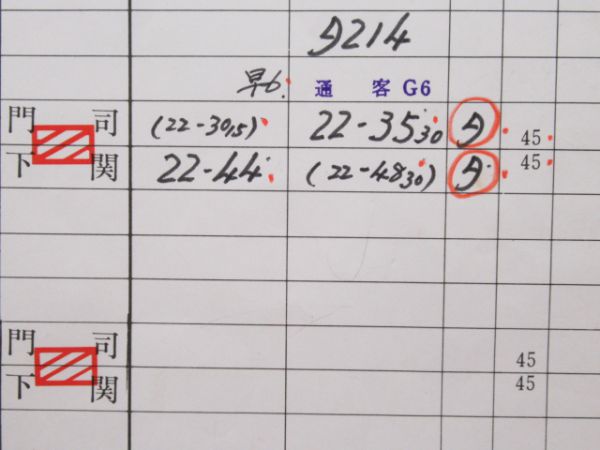 タ214
早6. 通 客 G6
門 司 (22-30₁₅) 22-35₃₀ タ 45
下 関 22-44 (22-48₃₀) タ 45
門 司 45
下 関 45